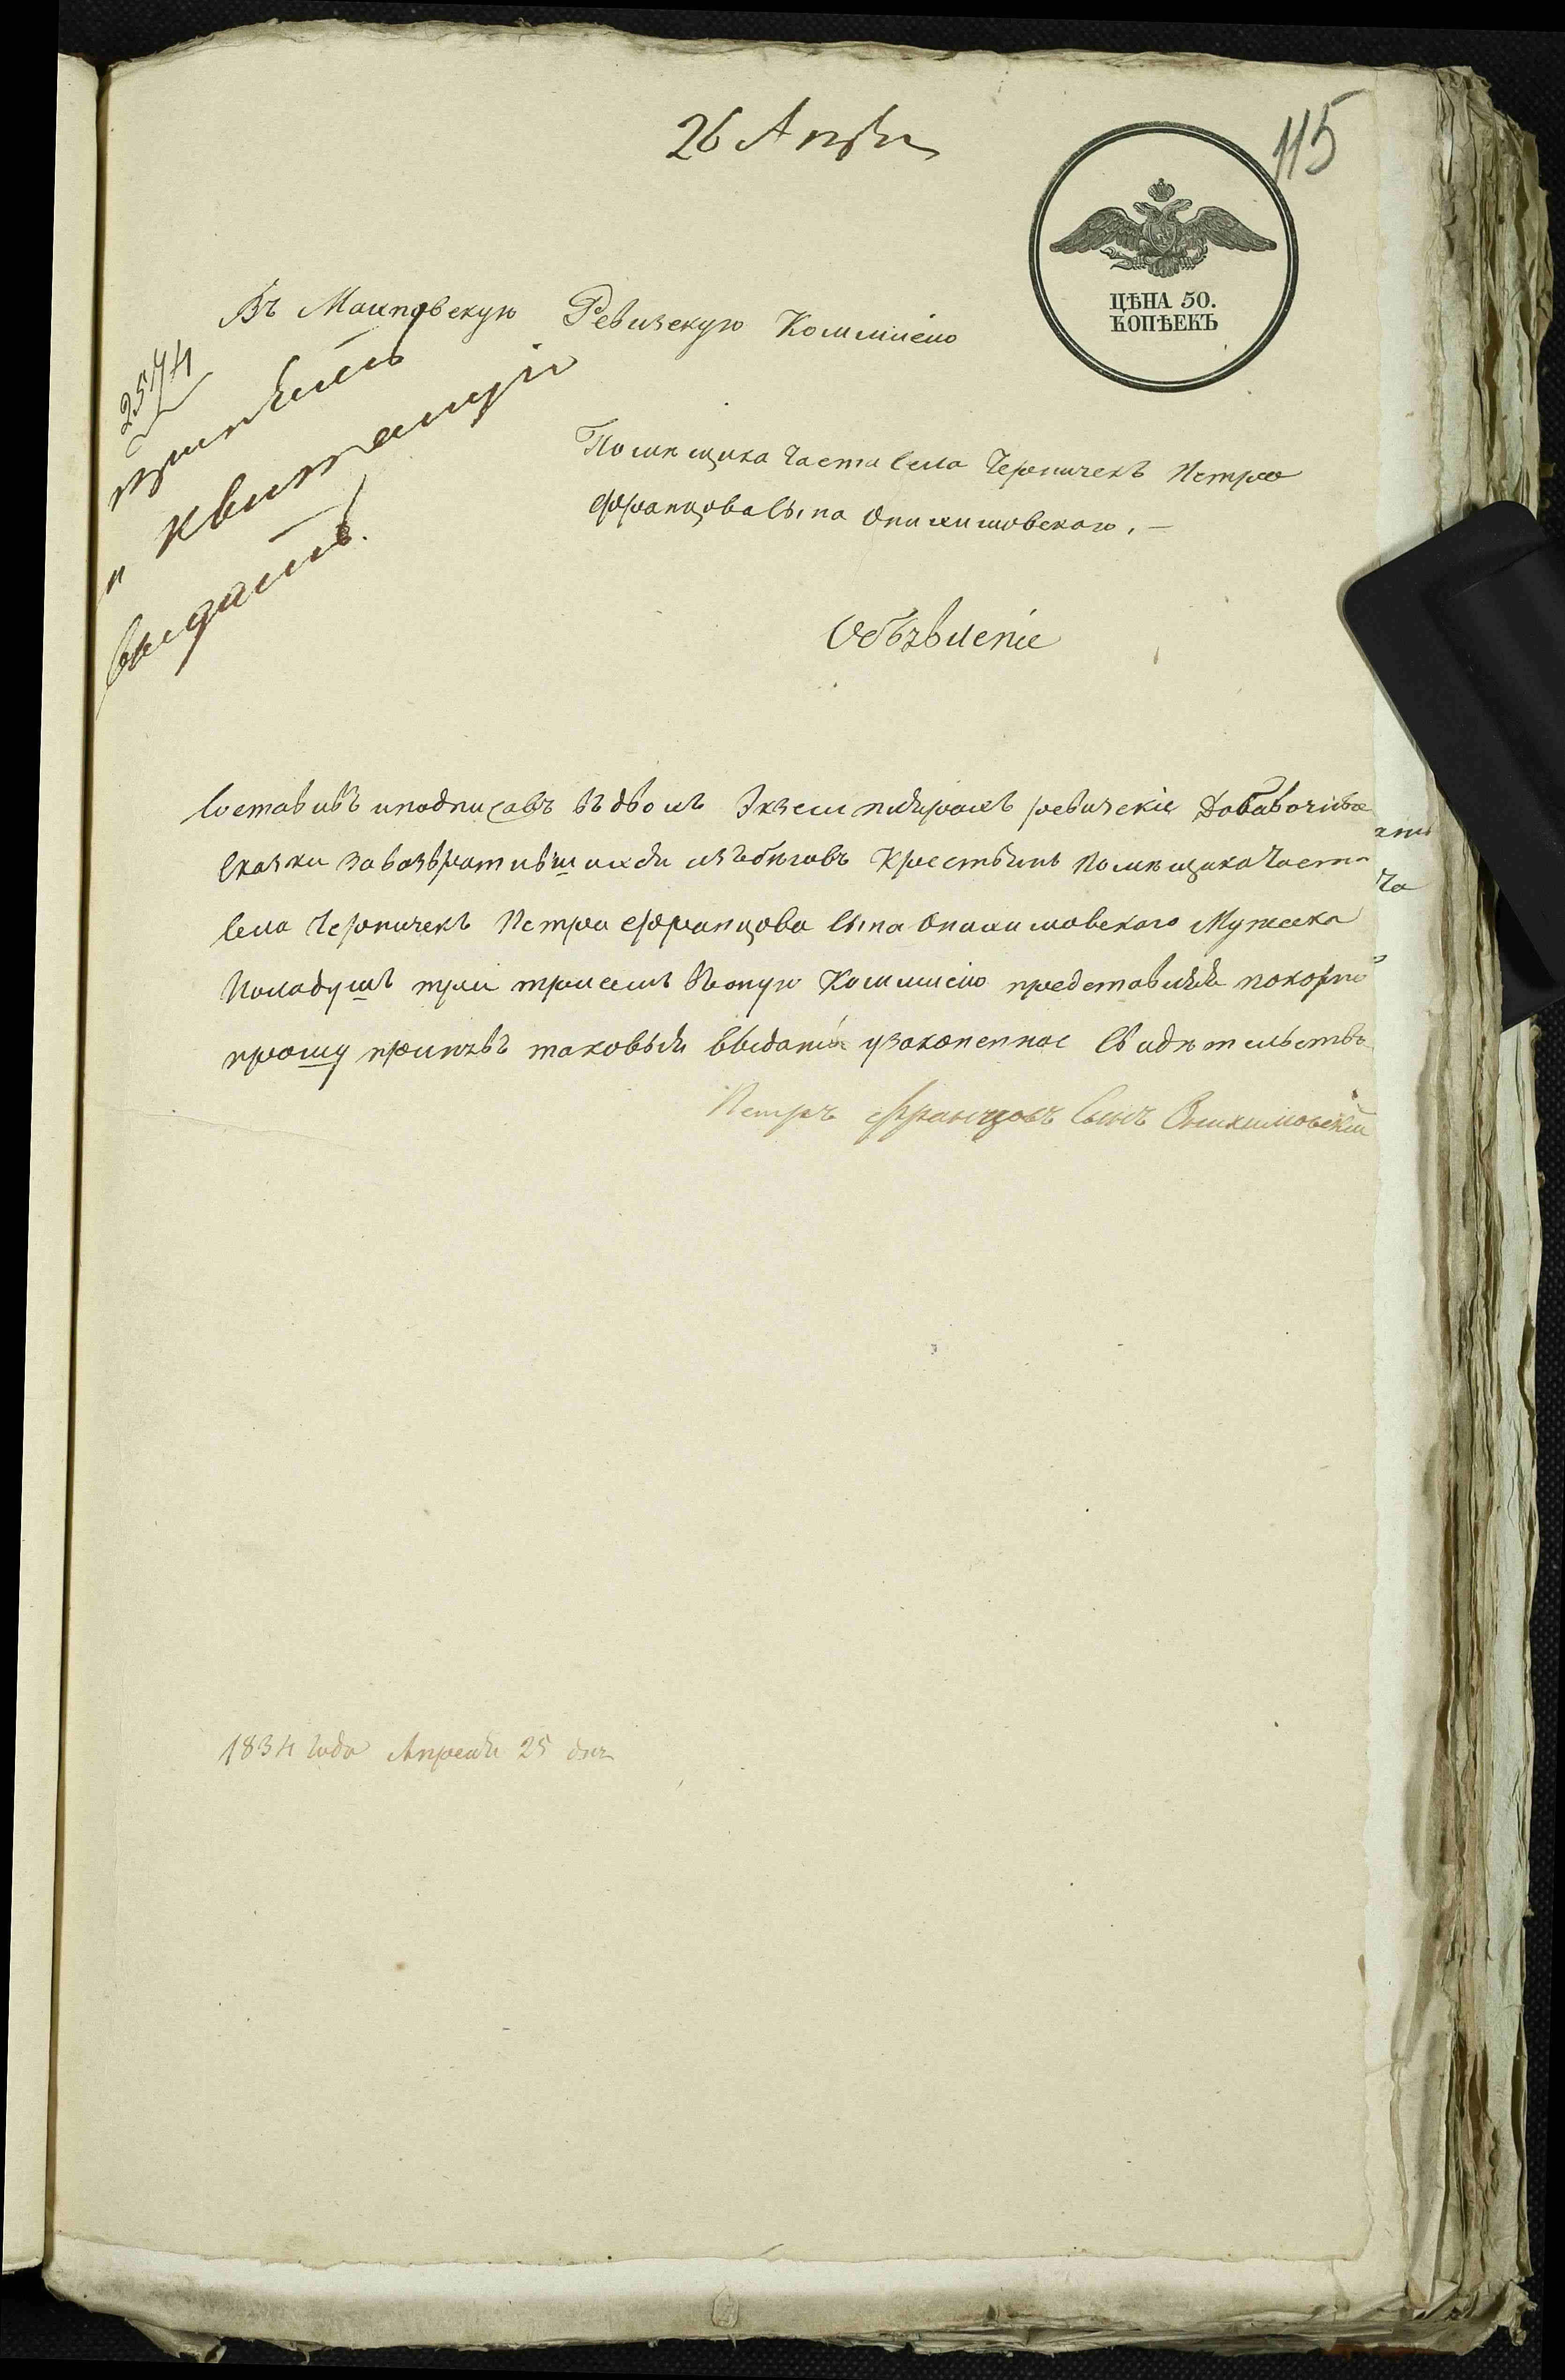 26 Апрѣл
115
ЦѢНА 50.
КОПѢЕКЪ
Въ Маиновскую Ревизскую Коммисію
2574
принять
и квитанцію
выдать.
Помѣщика Части Села Черничекъ Петра
Францова Сына Онихимовскаго. —
Объявленіе
Составивъ и подписавъ въ двохъ Экземплярахъ ревизскіе Добавочные
Сказки за возвратившихся изъ бѣговъ Крестьянъ Помѣщика Части
Села Черничекъ Петра Францова Сына Онихимовскаго Мужеска
Пола душъ три при семъ въ оную Коммисію представляя покорно
прошу принявъ таковыя выдать узаконенное Свидѣтельство
Петръ Францовъ Сынъ Онихимовскій
1834 Года Апреля 25 дня